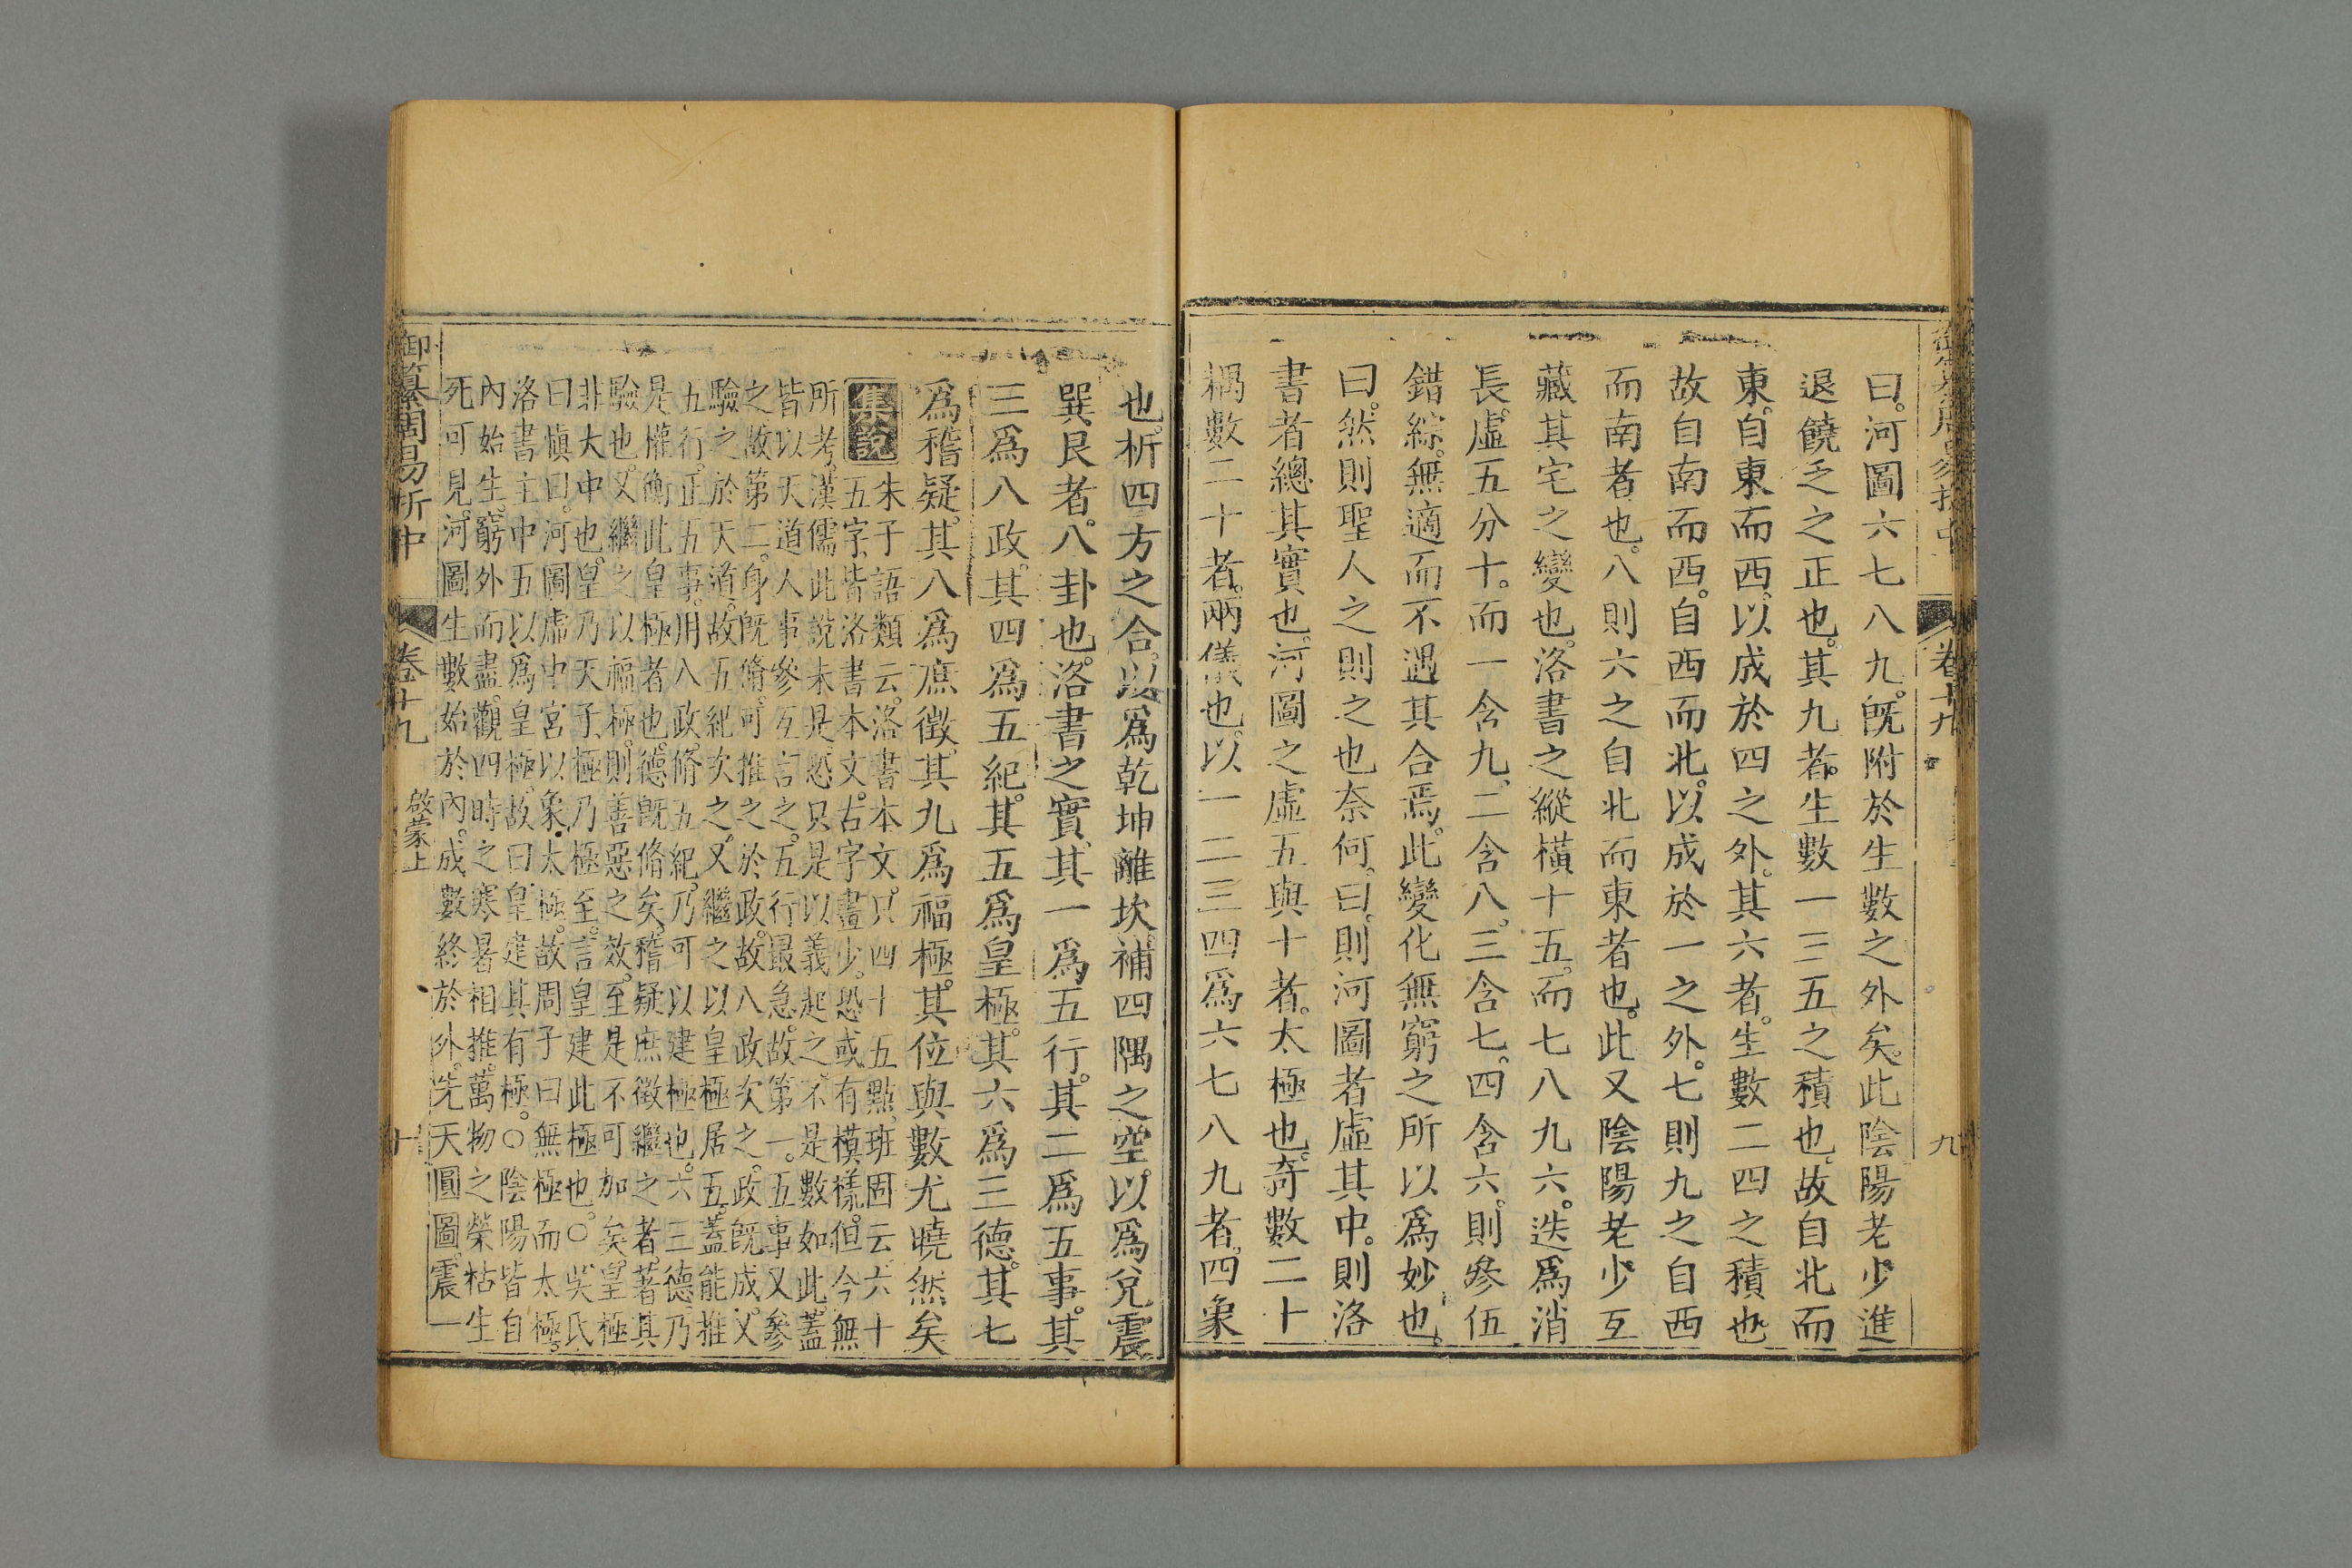 卷十九
九
曰。河圖六七八九。旣附於生數之外矣。此陰陽老少進
退饒乏之正也。其九者。生數一三五之積也。故自北而
東。自東而西。以成於四之外。其六者。生數二四之積也
故自南而西。自西而北。以成於一之外。七則九之自西
而南者也。八則六之自北而東者也。此又陰陽老少互
藏其宅之變也。洛書之縱橫十五。而七八九六。迭爲消
長。虛五分十。而一含九。二含八。三含七。四含六。則參伍
錯綜。無適而不遇其合焉。此變化無窮之所以爲妙也。
曰。然則聖人之則之也奈何。曰。則河圖者虛其中。則洛
書者總其實也。河圖之虛五與十者。太極也。奇數二十
耦數二十者。兩儀也。以一二三四爲六七八九者。四象
也。析四方之合。以爲乾坤離坎。補四隅之空。以爲兌震
巽艮者。八卦也。洛書之實。其一爲五行。其二爲五事。其
三爲八政。其四爲五紀。其五爲皇極。其六爲三德。其七
爲稽疑。其八爲庶徵。其九爲福極。其位與數尤曉然矣
集說
朱子語類云。洛書本文。只四十五點。班固云。六十
五字。皆洛書本文。古字畫少。恐或有模樣。但今無
所考。漢儒此說未是。恐只是以義起之。不是數如此。蓋
皆以天道人事參互言之。五行最急。故第一。五事又參
之。故第二。身旣脩。可推之於政。故八政次之。政旣成。又
驗之於天道。故五紀次之。又繼之以皇極居五。蓋能推
五行。正五事。用八政。脩五紀。乃可以建極也。六三德。乃
是權衡此皇極者也。德旣脩矣。稽疑庶徵繼之者。著其
驗也。又繼之以福極。則善惡之效。至是不可加矣。皇極
非大中也。皇乃天子。極乃極至。言皇建此極也。○吳氏
曰愼曰。河圖虛中宮以象太極。故周子曰無極而太極。
洛書主中五以爲皇極。故曰皇建其有極。○陰陽皆自
內始生。窮外而盡。觀四時之寒暑相推。萬物之榮枯生
死可見。河圖生數始於內。成數終於外。先天圓圖。震一
御纂周易折中
卷十九
啟蒙上
十